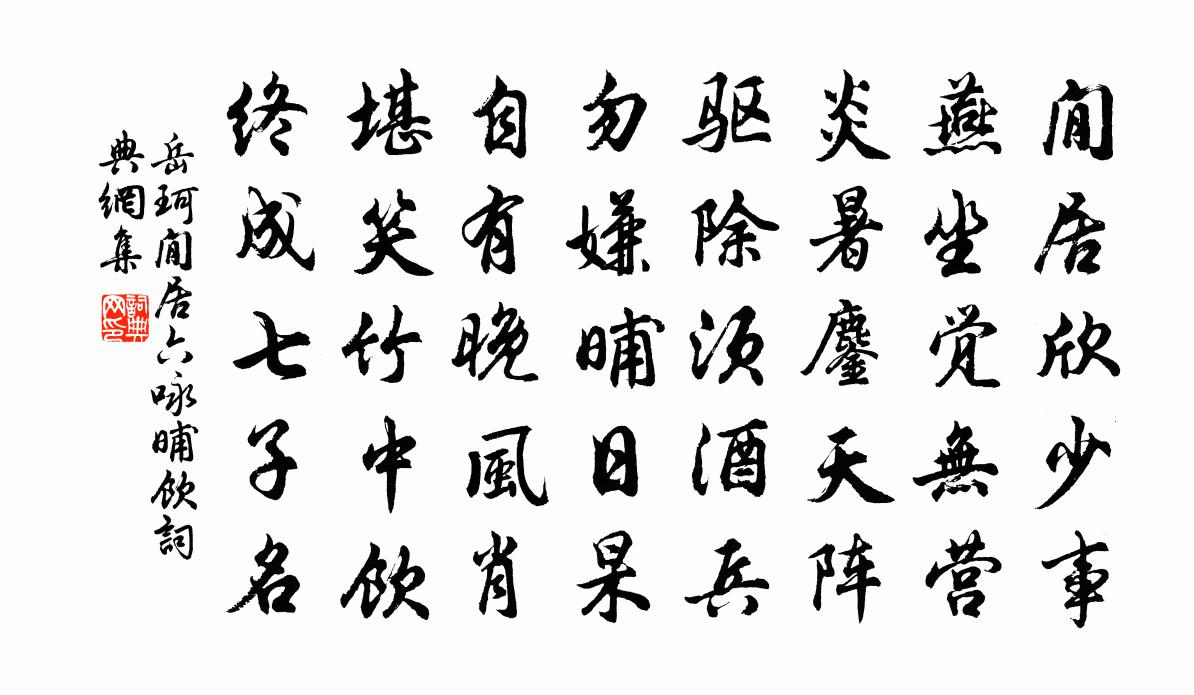 闲居欣少事
燕坐觉無营
炎暑鏖天阵
驱除须酒兵
勿嫌晡日杲
自有晚風肖
堪笑竹中飲
终成七子名
岳珂闲居六咏晡飲詞
典網集
詞典网印